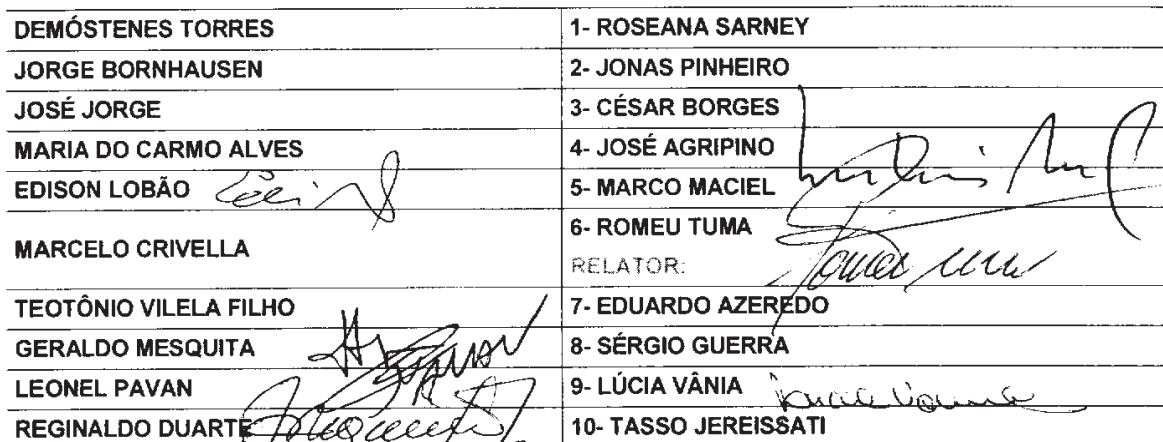 DEMÓSTENES TORRES 1- ROSEANA SARNEY
JORGE BORNHAUSEN 2- JONAS PINHEIRO
JOSÉ JORGE 3- CÉSAR BORGES
MARIA DO CARMO ALVES 4- JOSÉ AGRIPINO
EDISON LOBÃO 5- MARCO MACIEL
MARCELO CRIVELLA 6- ROMEU TUMA
RELATOR:
TEOTÔNIO VILELA FILHO 7- EDUARDO AZEREDO
GERALDO MESQUITA 8- SÉRGIO GUERRA
LEONEL PAVAN 9- LÚCIA VÂNIA
REGINALDO DUARTE 10- TASSO JEREISSATI